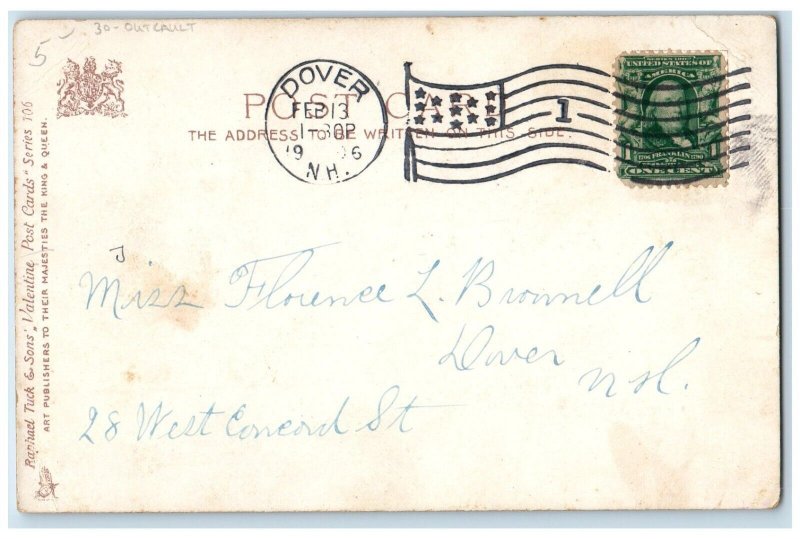 30-OUTCAULT
POST CARD
THE ADDRESS TO BE WRITTEN ON THIS SIDE.
DOVER
FEB 13
1-30P
19 06
N.H.
1
SERIES 1902
UNITED STATES OF
AMERICA
1706 FRANKLIN 1790
ONE CENT
Raphael Tuck & Sons' "Valentine Post Cards" Series 106
ART PUBLISHERS TO THEIR MAJESTIES THE KING & QUEEN.
Miss Florence L. Brownell
Dover
N.H.
28 West Concord St